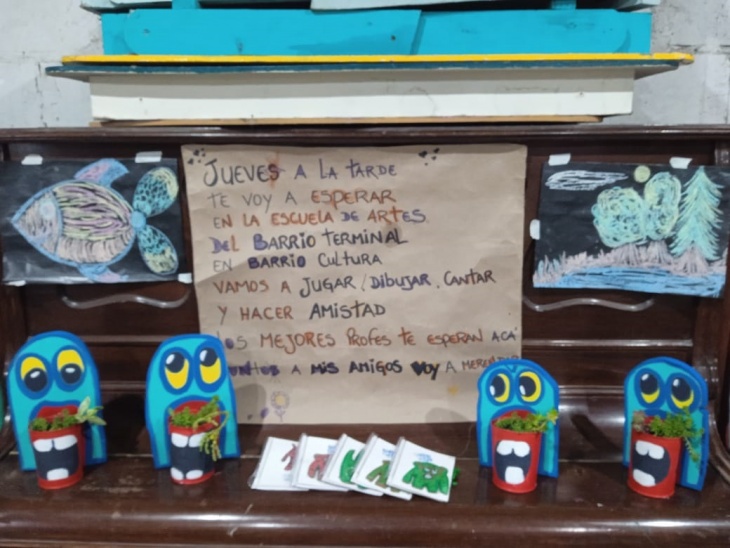 JUEVES A LA tARDE
TE VOY A ESPERAR
EN LA ESCUELA DE ARTES
DEL BARRIO TERMINAL
EN BARRIO CULTURA
VAMOS A JUGAR, DIBUJAR, CANTAR
Y HACER AMISTAD
LOS MEJORES PROFES tE ESPERAN ACÁ
JUNTOS A MIS AMIGOS VOY A